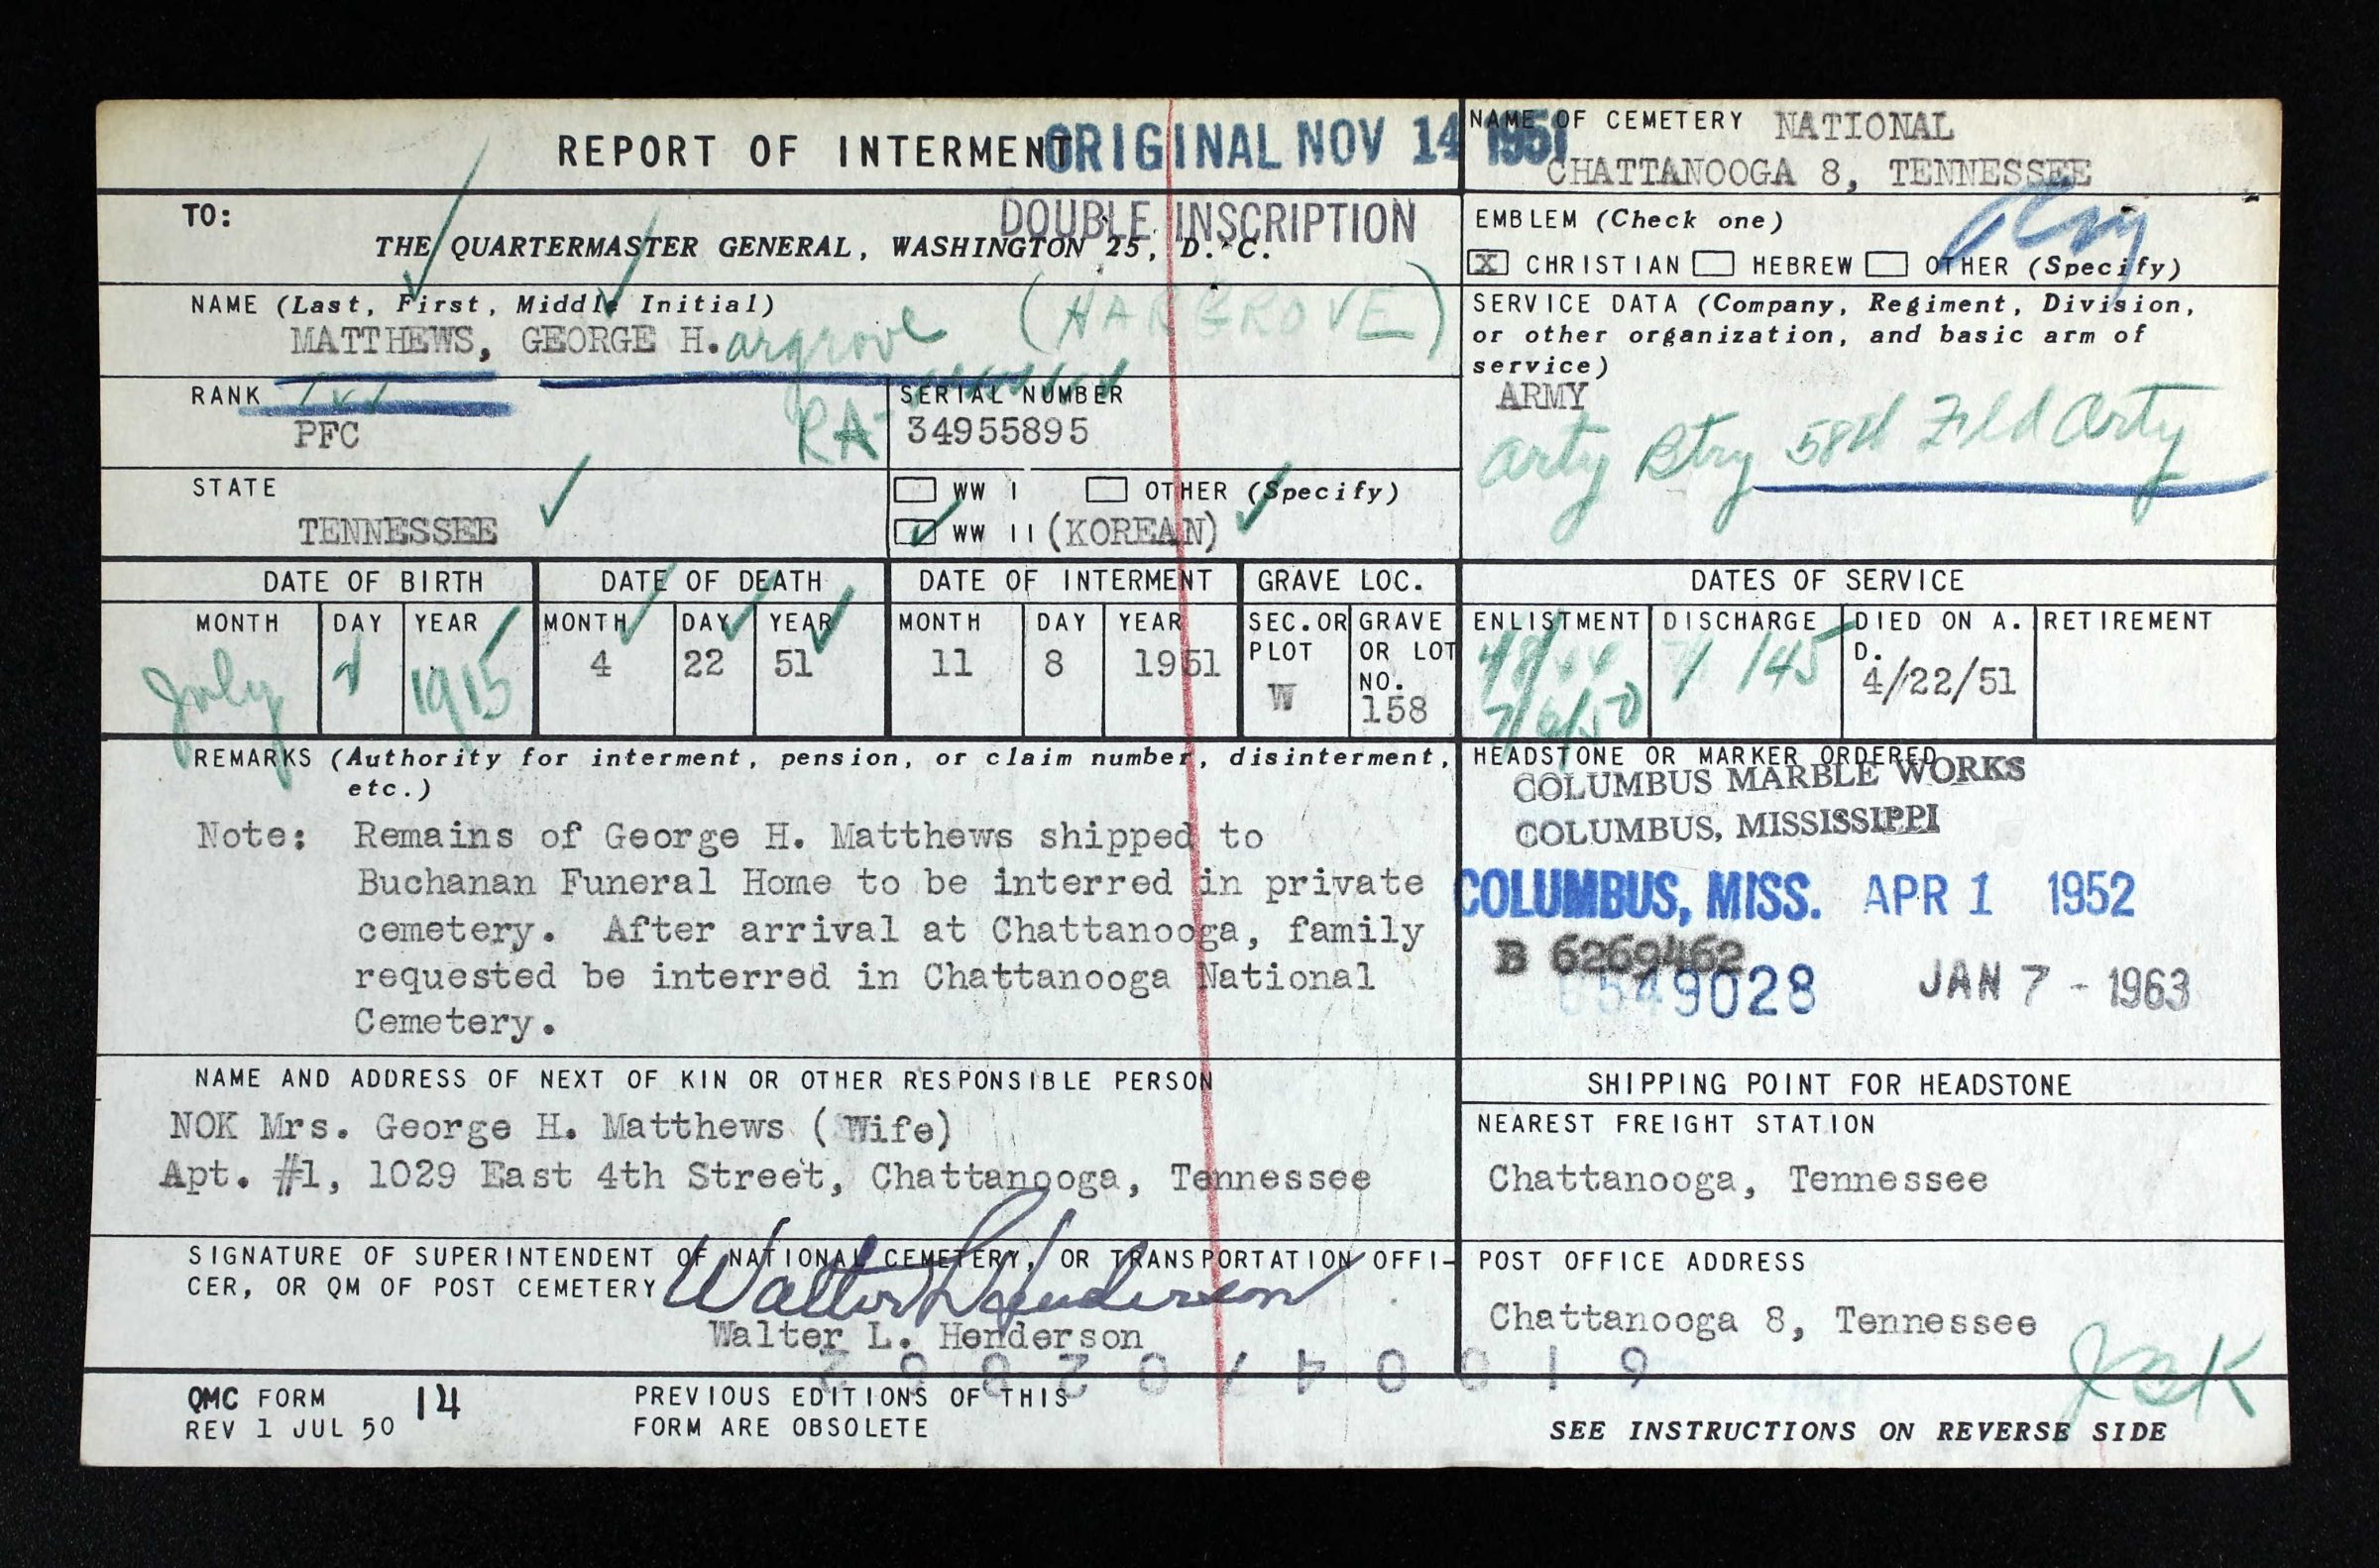 REPORT OF INTERMENT
ORIGINAL NOV 14 1951
NAME OF CEMETERY NATIONAL
CHATTANOOGA 8, TENNESSEE
TO:
THE QUARTERMASTER GENERAL, WASHINGTON 25, D. C.
DOUBLE INSCRIPTION
EMBLEM (Check one)
X CHRISTIAN HEBREW OTHER (Specify)
NAME (Last, First, Middle Initial)
MATTHEWS, GEORGE H.argrove (HARGROVE)
SERVICE DATA (Company, Regiment, Division,
or other organization, and basic arm of
service)
ARMY
Arty Btry 58th Fld Arty
RANK
PFC
SERIAL NUMBER
RA- 34955895
STATE
TENNESSEE
WW I OTHER (Specify)
WW II (KOREAN)
DATE OF BIRTH DATE OF DEATH DATE OF INTERMENT GRAVE LOC. DATES OF SERVICE
MONTH DAY YEAR MONTH DAY YEAR MONTH DAY YEAR SEC. OR PLOT GRAVE OR LOT NO. ENLISTMENT DISCHARGE DIED ON A. D. RETIREMENT
July 1915 4 22 51 11 8 1951 W 158 /45 4/22/51
REMARKS (Authority for interment, pension, or claim number, disinterment,
etc.)
Note: Remains of George H. Matthews shipped to
Buchanan Funeral Home to be interred in private
cemetery. After arrival at Chattanooga, family
requested be interred in Chattanooga National
Cemetery.
HEADSTONE OR MARKER ORDERED
COLUMBUS MARBLE WORKS
COLUMBUS, MISSISSIPPI
COLUMBUS, MISS. APR 1 1952
B 6269462
549028 JAN 7 - 1963
NAME AND ADDRESS OF NEXT OF KIN OR OTHER RESPONSIBLE PERSON
NOK Mrs. George H. Matthews (Wife)
Apt. #1, 1029 East 4th Street, Chattanooga, Tennessee
SHIPPING POINT FOR HEADSTONE
NEAREST FREIGHT STATION
Chattanooga, Tennessee
SIGNATURE OF SUPERINTENDENT OF NATIONAL CEMETERY, OR TRANSPORTATION OFFI-
CER, OR QM OF POST CEMETERY
Walter L Henderson
Walter L. Henderson
POST OFFICE ADDRESS
Chattanooga 8, Tennessee
QMC FORM 14
REV 1 JUL 50
PREVIOUS EDITIONS OF THIS
FORM ARE OBSOLETE
SEE INSTRUCTIONS ON REVERSE SIDE